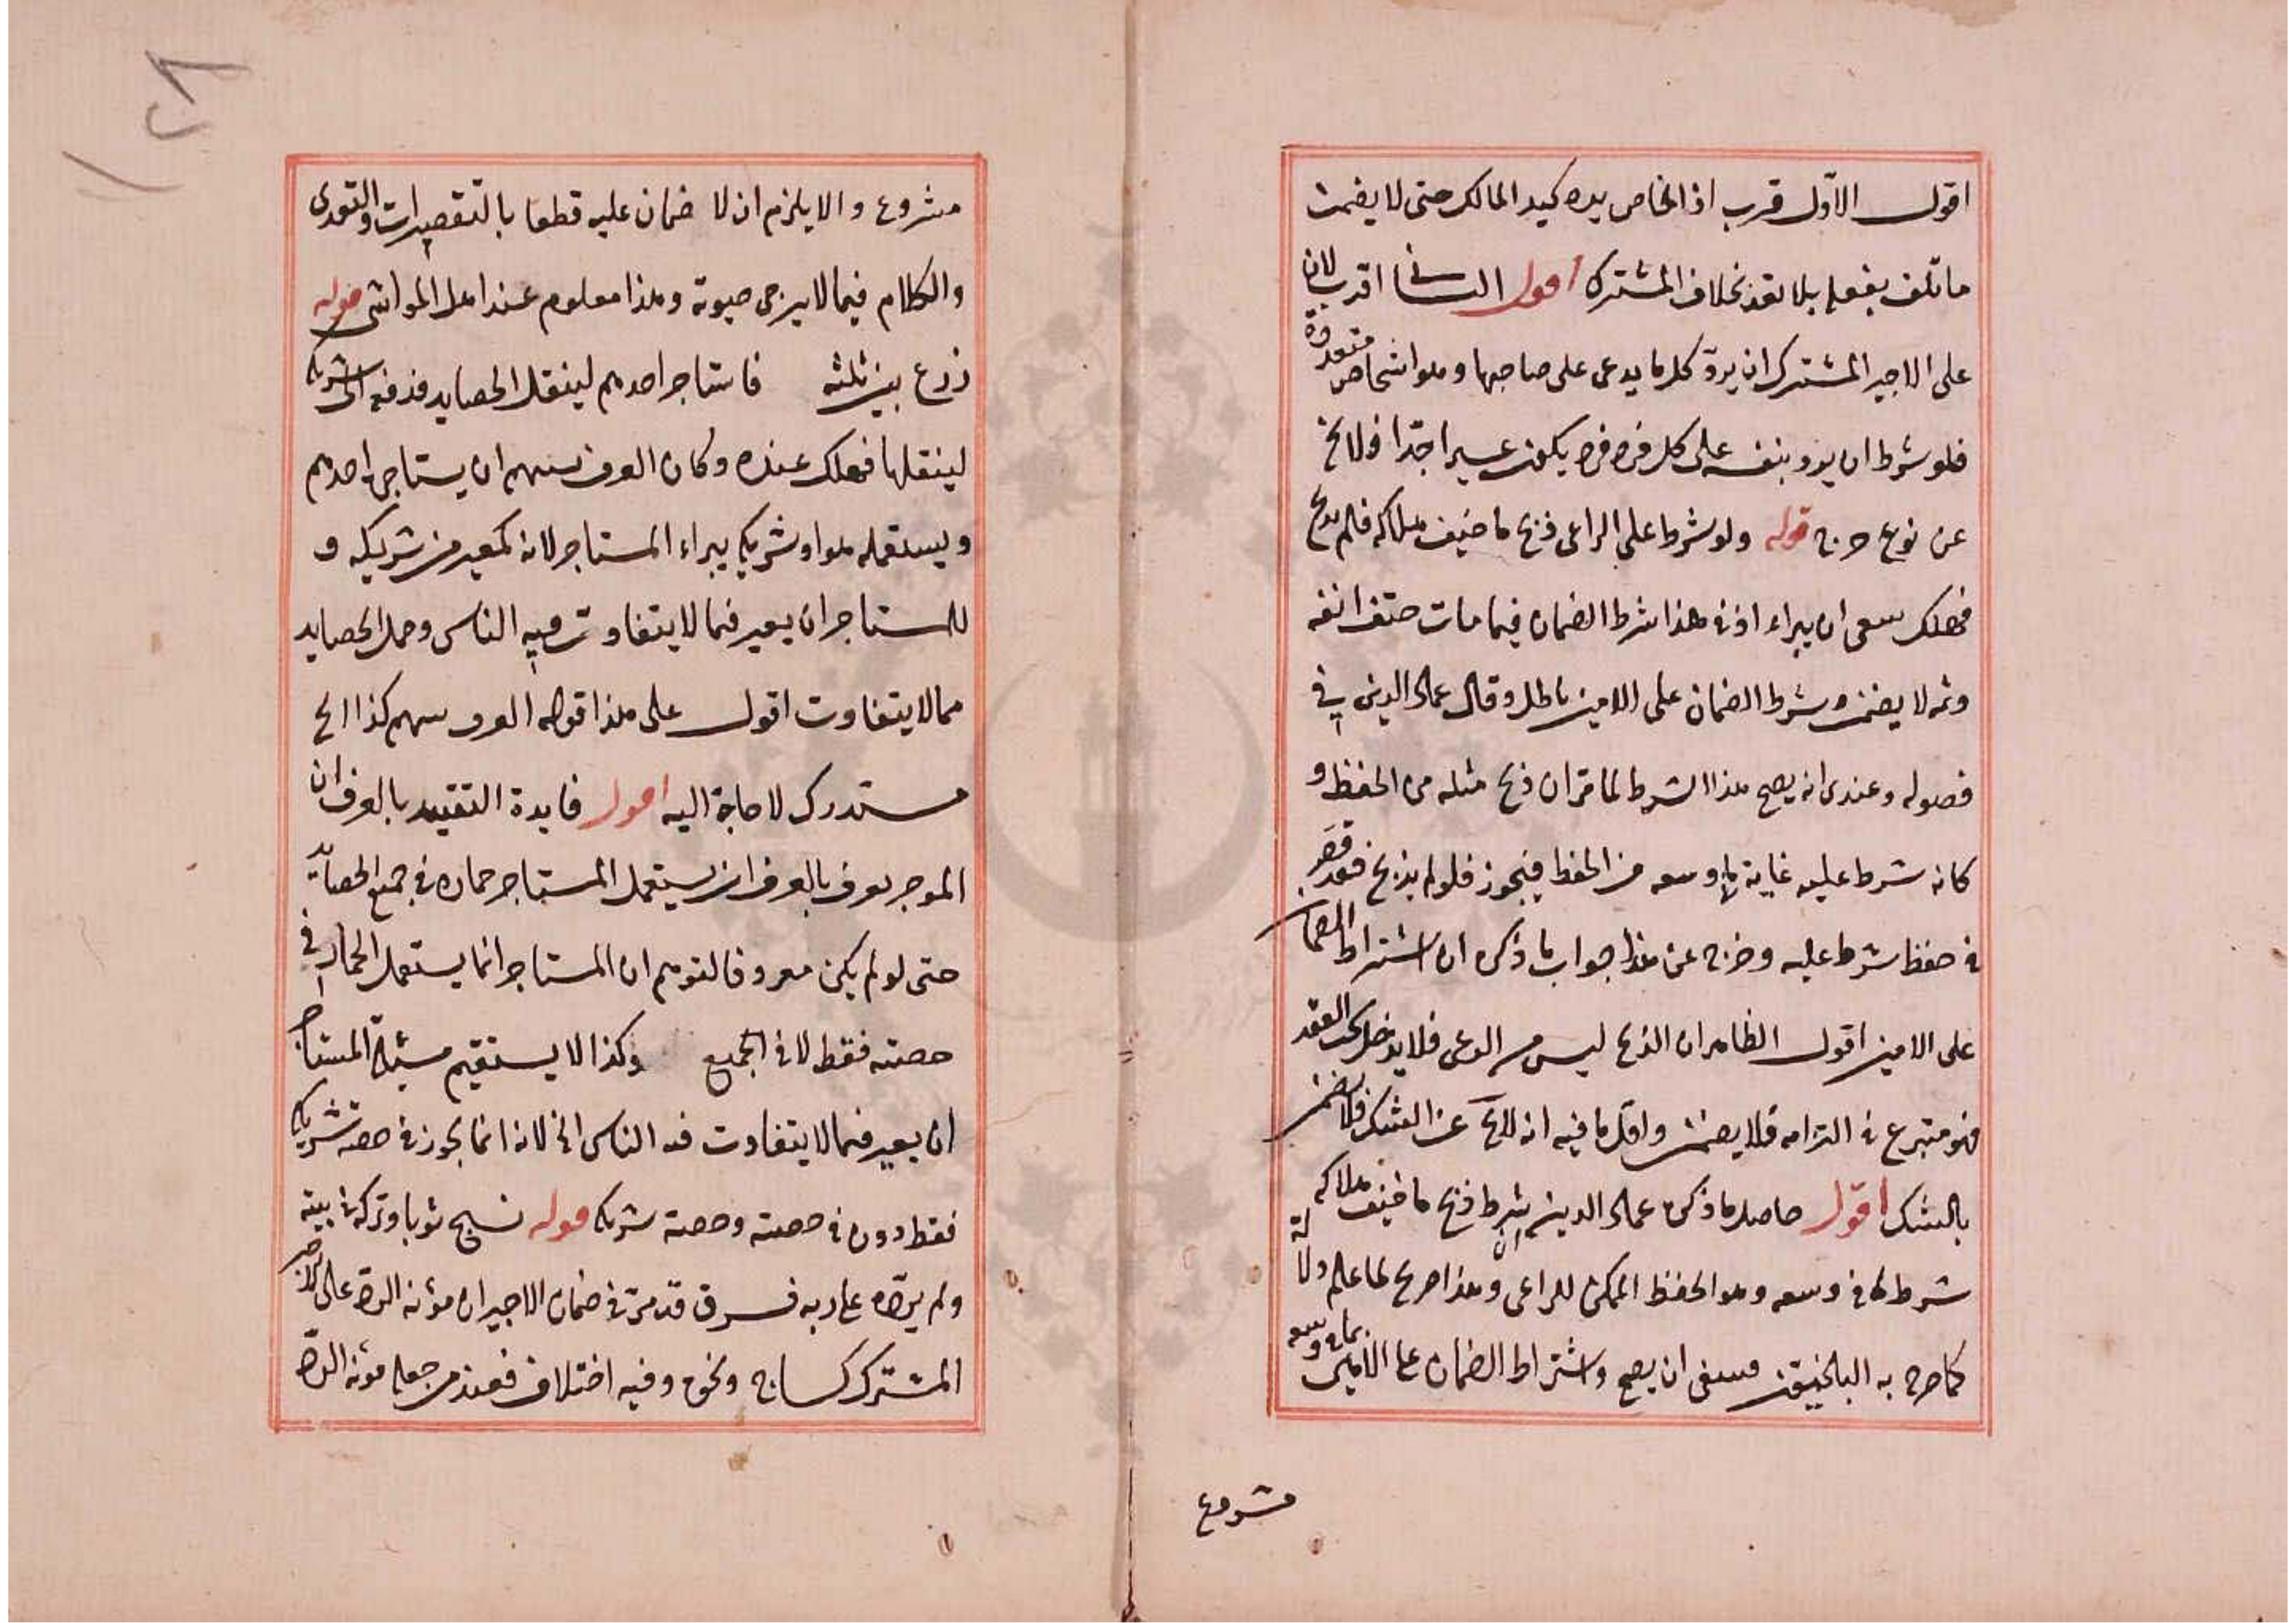 اقول الاوّل قرب اذ الخاص يده كيد المالك حتى لا يضمن
ما تلف بفعله بلا تعد بخلاف المشترك اقول الثانى اقرب لان
على الاجير المشترك ان يردّ كل ما يدعى على صاحبها وهو اشخاص متعددة
فلو شرط ان يرد بنفسه على كل فرد فرد يكون عسيرا جدّا فلا يخ
عن نوع حرج قوله ولو شرط على الراعى ذبح ما خيف هلاكه فلم يذبح
فهلك ينبغى ان يبراء اذ فى هذا شرط الضمان فيما مات حتف انفه
وثمه لا يضمن وشرط الضمان على الامين باطل وقال عماد الدين فى
فصوله وعندى انه يصح هذا الشرط لما مر ان ذبح مثله من الحفظ و
كانه شرط عليه غاية ما وسعه من الحفظ فيجوز فلو لم يذبح فقد قصر
فى حفظ شرط عليه وخرج عن هذا جواب ما ذكره ان اشتراط الضمان
على الامين اقول الظاهر ان الذبح ليس من الرعى فلا يدخل تحت العقد
فهو متبرع فى التزامه فلا يضمن واقل ما فيه انه لا يخ عن الشك فلا يضمن
بالشك اقول حاصل ما ذكره عماد الدين ان شرط ذبح ما خيف هلاكه
شرط لما فى وسعه وهو الحفظ الممكن للراعى وهذا صريح لما علم دلالة
كما صرح به البلخيون فينبغى ان يصح واشتراط الضمان على الامين بما فى وسعه
مشروع
مشروع والا يلزم ان لا ضمان عليه قطعا بالتقصيرات والتعدى
والكلام فيما لا يرجى حيوته وهذا معلوم عند اهل المواشى قوله
زرع بين ثلثه فاستاجر احدهم لينقل الحصايد فدفعه الى شريكه
لينقلها فهلك عنده وكان العرف بينهم ان يستاجر احدهم
ويستعمله هو او شريكه يبراء المستاجر لانه كمعير من شريكه و
للمستاجر ان يعير فيما لا يتفاوت فيه الناس وحمل الحصايد
مما لا يتفاوت اقول على هذا قوله العرف بينهم كذا الخ
مستدرك لا حاجة اليه اقول فايدة التقييد بالعرف ان
الموجر يعرف بالعرف ان يستعمل المستاجر حماره فى جميع الحصايد
حتى لو لم يكن معروفا لتوهم ان المستاجر انما يستعمل الحمار فى
حصته فقط لا فى الجميع وكذا لا يستقيم مسئلة المستاجر
ان يعير فيما لا يتفاوت فيه الناس الخ لانه انما يجوز فى حصة شريكه
فقط دون فى حصته وحصة شريكه قوله نسج ثوبا وتركه فى بيته
ولم يردّه على ربه فسرق قد مرّ فى ضمان الاجير ان مؤنة الردّ على الاجير
المشترك كنساج ونحوه وفيه اختلاف فعند من جعل مؤنة الردّ